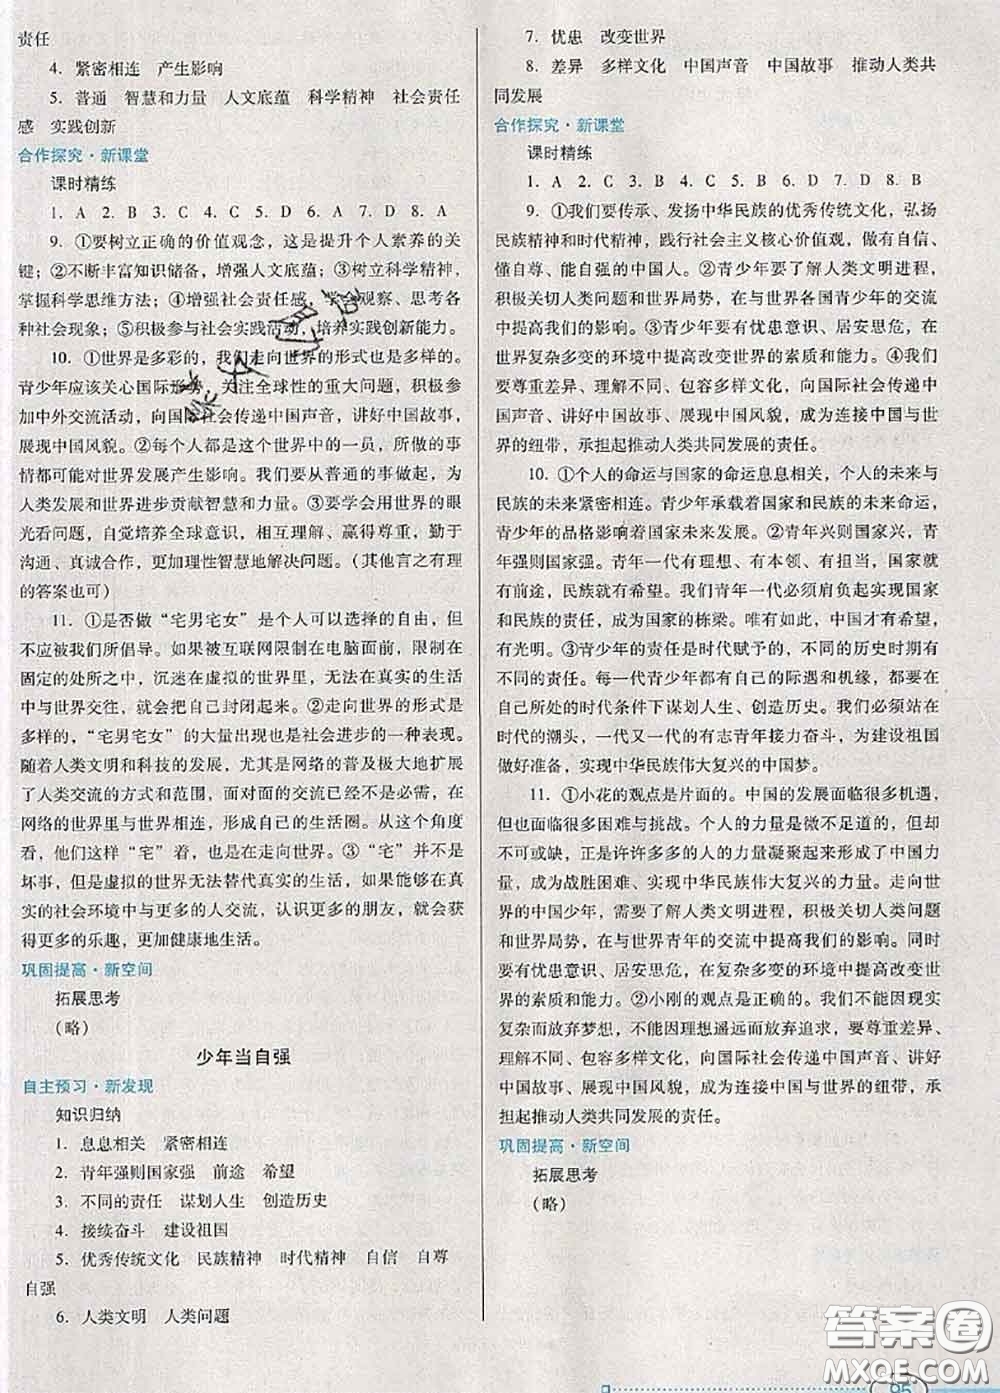 责任
4. 紧密相连 产生影响
5. 普通 智慧和力量 人文底蕴 科学精神 社会责任
感 实践创新
合作探究·新课堂
课时精练
1. A 2. B 3. C 4. C 5. D 6. A 7. D 8. A
9. ①要树立正确的价值观念，这是提升个人素养的关
键；②不断丰富知识储备，增强人文底蕴；③树立科学精神，
掌握科学思维方法；④增强社会责任感，学会观察、思考各
种社会现象；⑤积极参与社会实践活动，培养实践创新能力。
10. ①世界是多彩的，我们走向世界的形式也是多样的。
青少年应该关心国际形势，关注全球性的重大问题，积极参
加中外交流活动，向国际社会传递中国声音，讲好中国故事，
展现中国风貌。②每个人都是这个世界中的一员，所做的事
情都可能对世界发展产生影响。我们要从普通的事做起，为
人类发展和世界进步贡献智慧和力量。③要学会用世界的眼
光看问题，自觉培养全球意识，相互理解、赢得尊重，勤于
沟通、真诚合作，更加理性智慧地解决问题。（其他言之有理
的答案也可）
11. ①是否做“宅男宅女”是个人可以选择的自由，但
不应被我们所倡导。如果被互联网限制在电脑面前，限制在
固定的处所之中，沉迷在虚拟的世界里，无法在真实的生活
中与世界交往，就会把自己封闭起来。②走向世界的形式是
多样的，“宅男宅女”的大量出现也是社会进步的一种表现。
随着人类文明和科技的发展，尤其是网络的普及极大地扩展
了人类交流的方式和范围，面对面的交流已经不是唯一，在
网络的世界里与世界相连，形成自己的生活圈。从这个角度
看，他们这样“宅”着，也是在走向世界。③“宅”并不是
坏事，但是虚拟的世界无法替代真实的生活，如果能在真实
的社会环境中与更多的人交流，认识更多的朋友，就会获
得更多的乐趣，更加健康地生活。
巩固提高·新空间
拓展思考
（略）
少年当自强
自主预习·新发现
知识归纳
1. 息息相关 紧密相连
2. 青年强则国家强 前途 希望
3. 不同的责任 谋划人生 创造历史
4. 接续奋斗 建设祖国
5. 优秀传统文化 民族精神 时代精神 自信 自尊
自强
6. 人类文明 人类问题
7. 忧患 改变世界
8. 差异 多样文化 中国声音 中国故事 推动人类共
同发展
合作探究·新课堂
课时精练
1. A 2. C 3. B 4. C 5. B 6. D 7. D 8. B
9. ①我们要传承、发扬中华民族的优秀传统文化，弘扬
民族精神和时代精神，践行社会主义核心价值观，做有自信、
懂自尊、能自强的中国人。②青少年要了解人类文明进程，
积极关切人类问题和世界局势，在与世界各国青少年的交流
中提高我们的影响。③青少年要有忧患意识、居安思危，在
世界复杂多变的环境中提高改变世界的素质和能力。④我们
要尊重差异、理解不同、包容多样文化，向国际社会传递中
国声音、讲好中国故事、展现中国风貌，成为连接中国与世
界的纽带，承担起推动人类共同发展的责任。
10. ①个人的命运与国家的命运息息相关，个人的未来与
民族的未来紧密相连。青少年承载着国家和民族的未来命运，
青少年的品格影响着国家未来发展。②青年兴则国家兴，青
年强则国家强。青年一代有理想、有本领、有担当，国家就
有前途，民族就有希望。我们青年一代必须肩负起实现国家
和民族的责任，成为国家的栋梁。唯有如此，中国才有希望，
有光明。③青少年的责任是时代赋予的，不同的历史时期有
不同的责任。每一代青少年都有自己的际遇和机缘，都要在
自己所处的时代条件下谋划人生、创造历史。我们必须站在
时代的潮头，一代又一代的有志青年接力奋斗，为建设祖国
做好准备，实现中华民族伟大复兴的中国梦。
11. ①小花的观点是片面的。中国的发展面临很多机遇，
但同时面临很多困难与挑战。个人的力量是微不足道的，但却
不可或缺，正是许许多多的人的力量凝聚起来形成了中国力
量，成为战胜困难、实现中华民族伟大复兴的力量。走向世
界的中国少年，需要了解人类文明进程，积极关切人类问题
和世界局势，在与世界青年的交流中提高我们的影响。同时
要有忧患意识、居安思危，在复杂多变的环境中提高改变世
界的素质和能力。②小刚的观点是正确的。我们不能因现实
复杂而放弃梦想，不能因理想遥远而放弃追求，要尊重差异、
理解不同、包容多样文化，向国际社会传递中国声音、讲好
中国故事、展现中国风貌，成为连接中国与世界的纽带，承
担起推动人类共同发展的责任。
巩固提高·新空间
拓展思考
（略）
答案圈
MXQE.COM